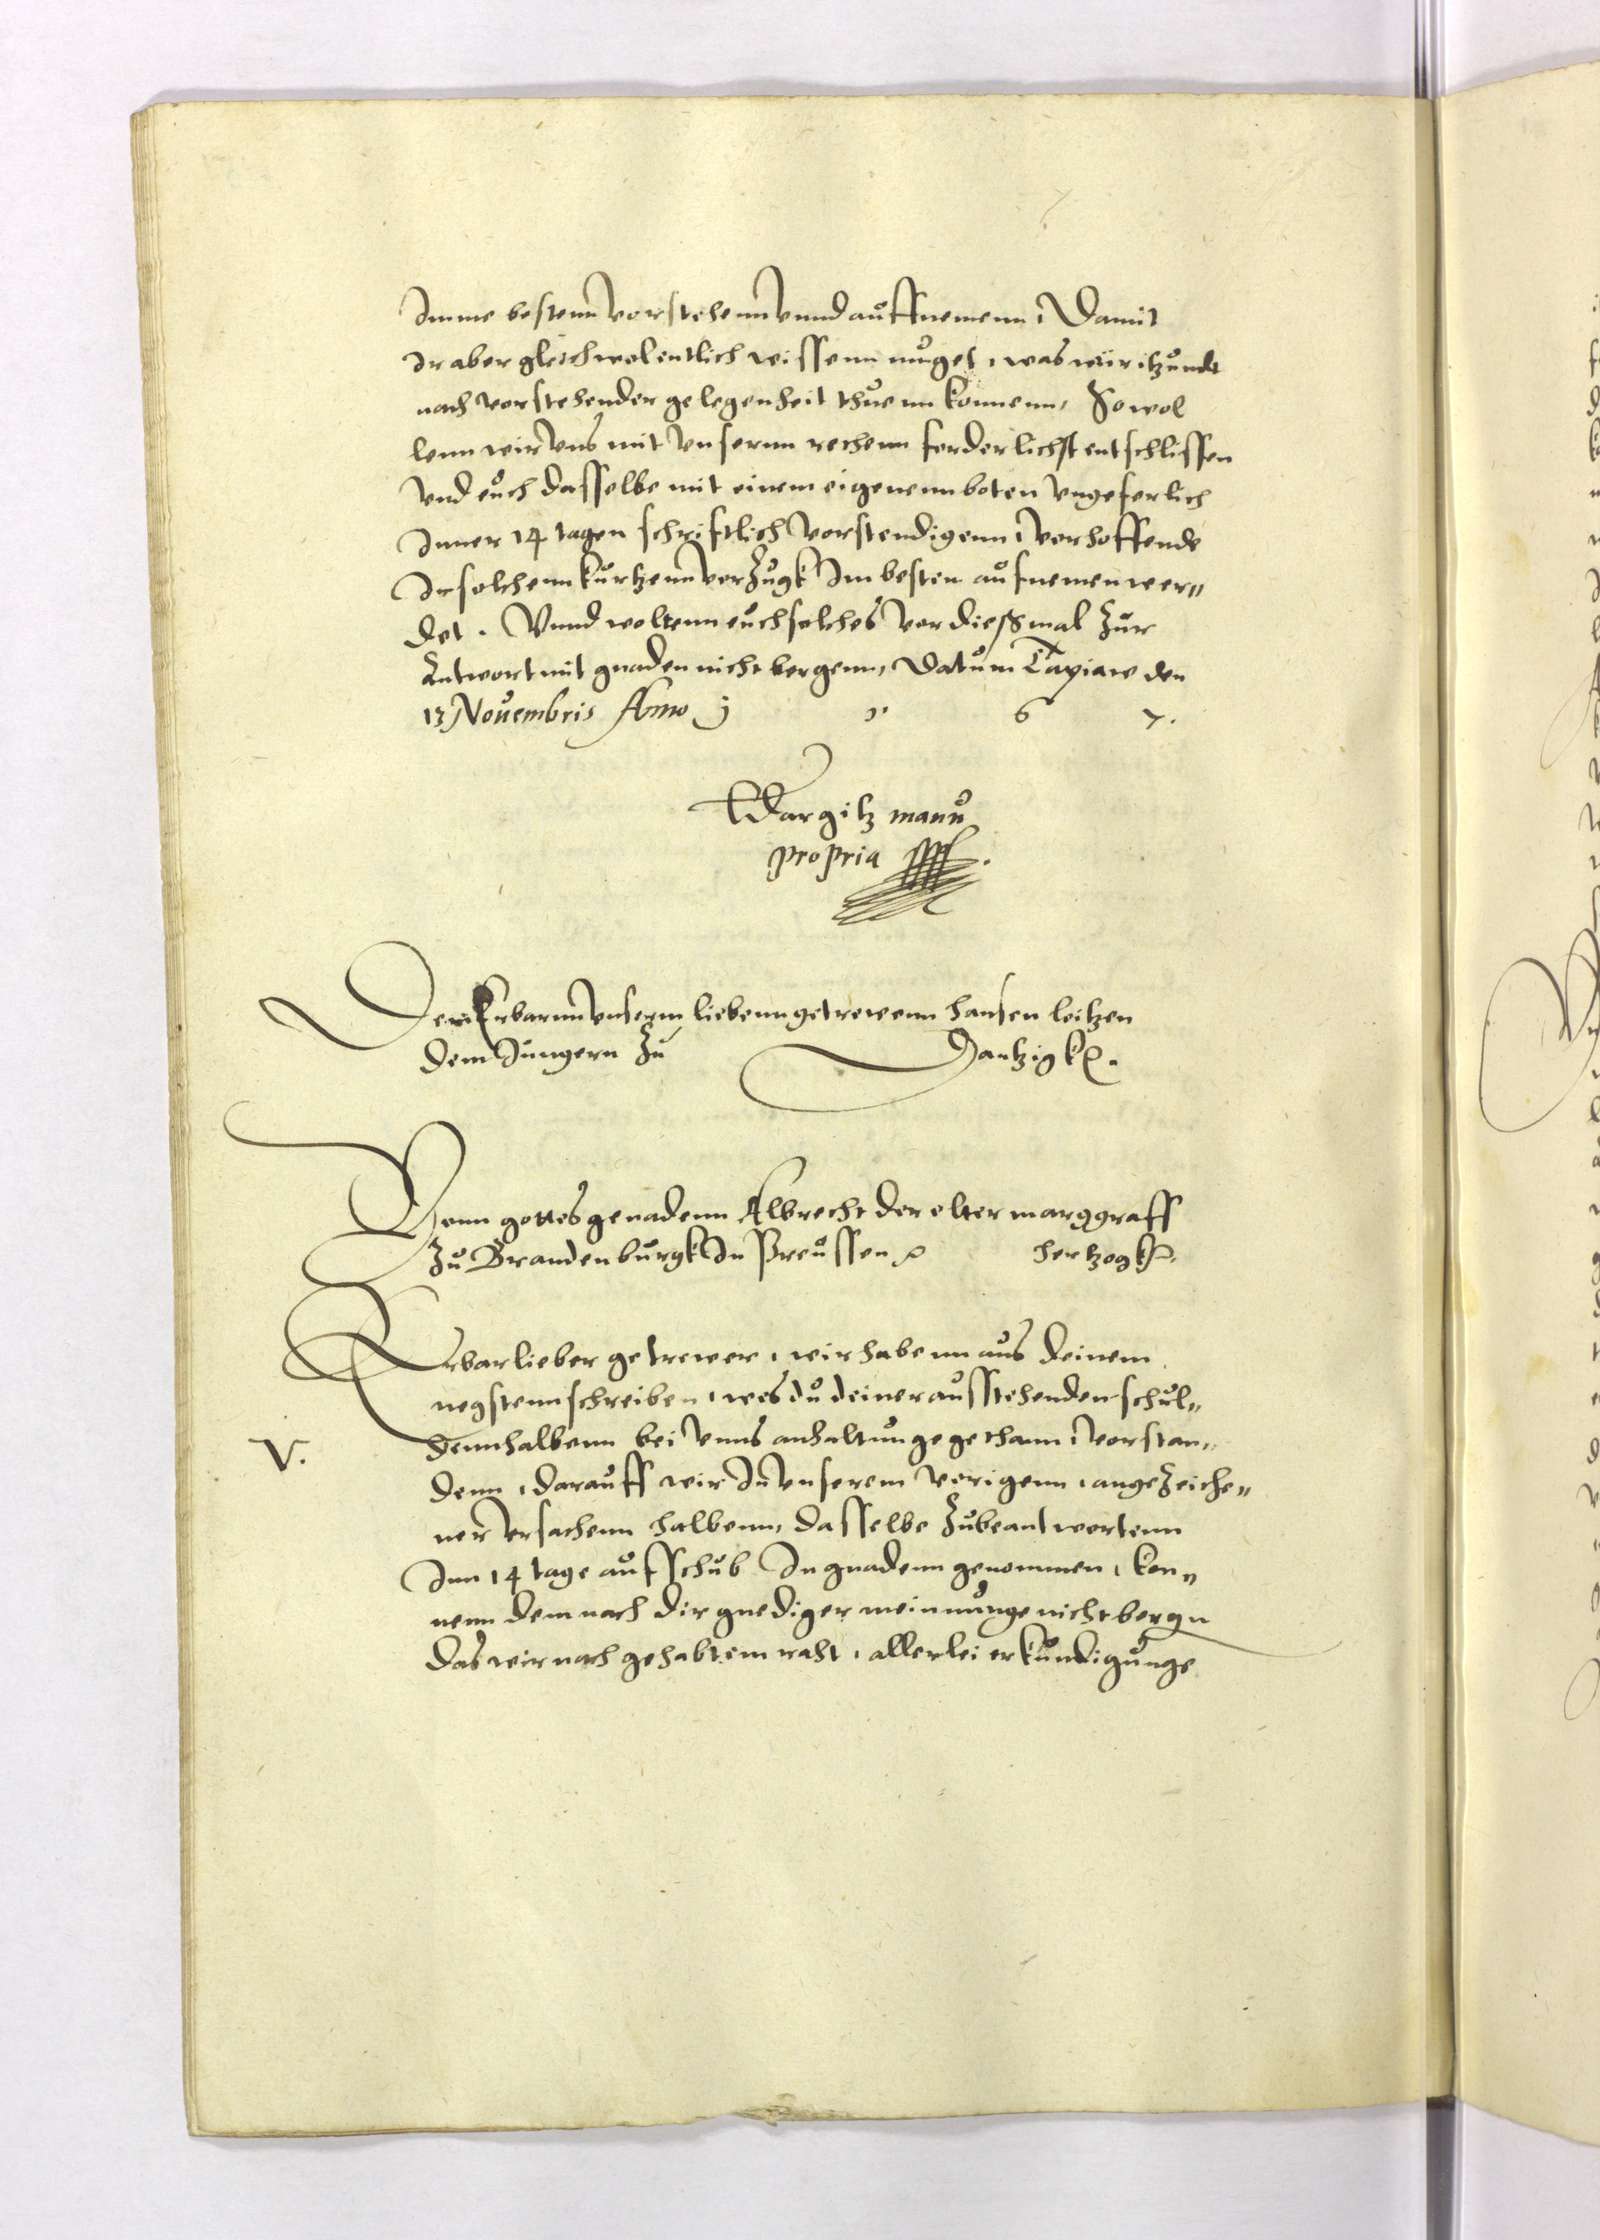 Imme bestenn vorstehenn vnnd auffnemenn, Damit
Ir aber gleichwol entlich wissenn muget, was wir itzundt
nach vorstehender gelegenheit thuenn konnenn, So wol
lenn wir vns mit vnsernn rethenn forderlichst entschlissen
vnd euch dasselbe mit einem eigenenn boten vngeferlich
Inner 14 tagen schriftlich vorstendigenn, vorhoffende
Ir solchenn kurtzenn vorzugk Im besten aufnemen wer„
det. Vnnd woltenn euch solches vor dießmal zur
Antwort mit gnaden nicht bergenn, Datum Tapiaw den
13 Nouembris Anno j 5 6 7.
Wargitz manu
propria
Dem Erbarnn vnserm liebenn getrewenn Hansen leitzen
dem Jungern zu Dantzigk
Vonn gottes genadenn Albrecht der elter marggraff
zu Brandenburgk In Preussen Hertzogk
Erbar lieber getrewer, wir habenn aus deinem
negstenn schreiben, wes du deiner ausstehenden schul„
V.
dennhalbenn bei vnns anhaltunge gethann, vorstan„
denn, darauff wir In vnserem vorigenn, angezeiche„
ner vrsachenn halbenn, dasselbe zubeantwortenn
Inn 14 tage aufschub In gnadenn genommen, kon„
nenn demnach dir gnediger meinnunge nicht bergn
das wir nach gehabtem raht, allerlei erkundigunge